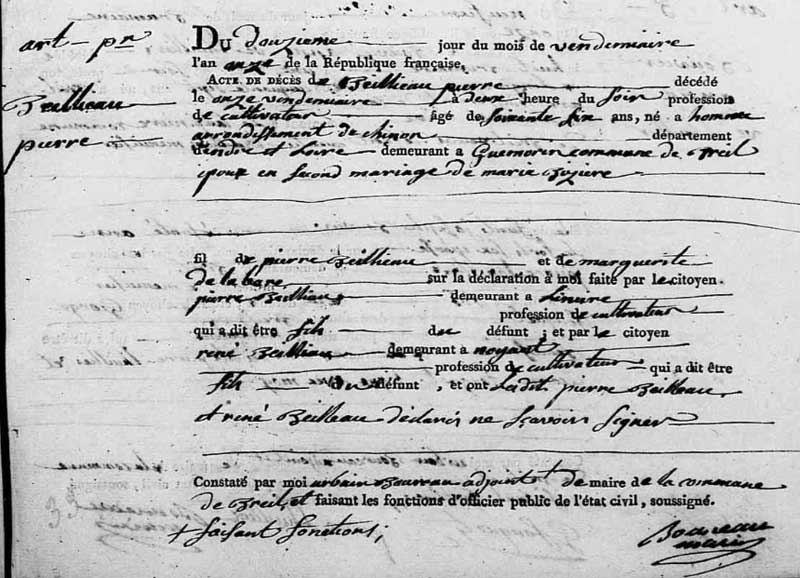 art – pr
Beillieau
pierre
DU douzieme jour du mois de vendemiaire
l'an onze de la République française,
ACTE DE DÉCÈS de Beillieau pierre décédé
le onze vendemiaire à deux heure du soir profession
de cultivateur âgé de soixante six ans, né a homme
arrondissement de chinon département
d'indre et Loire demeurant a Guemorin commune de Breil
Epoux en second mariage de marie
fil de pierre Beillieau et de marguerite
de la bare sur la déclaration à moi faite par le citoyen
pierre Beillieau demeurant a
profession de cultivateur
qui a dit être fils du défunt ; et par le citoyen
rené Beillieau demeurant à noyant
profession de cultivateur qui a dit être
fils du défunt , et ont Ledit pierre Beilleau
et rené Beilleau déclarés ne sçavoir signer
Constaté par moi urbain Boureau adjoint + de maire de la commune
de Breil, et faisant les fonctions d'officier public de l'état civil, soussigné.
+ faisant fonctions;
Boureau
maire